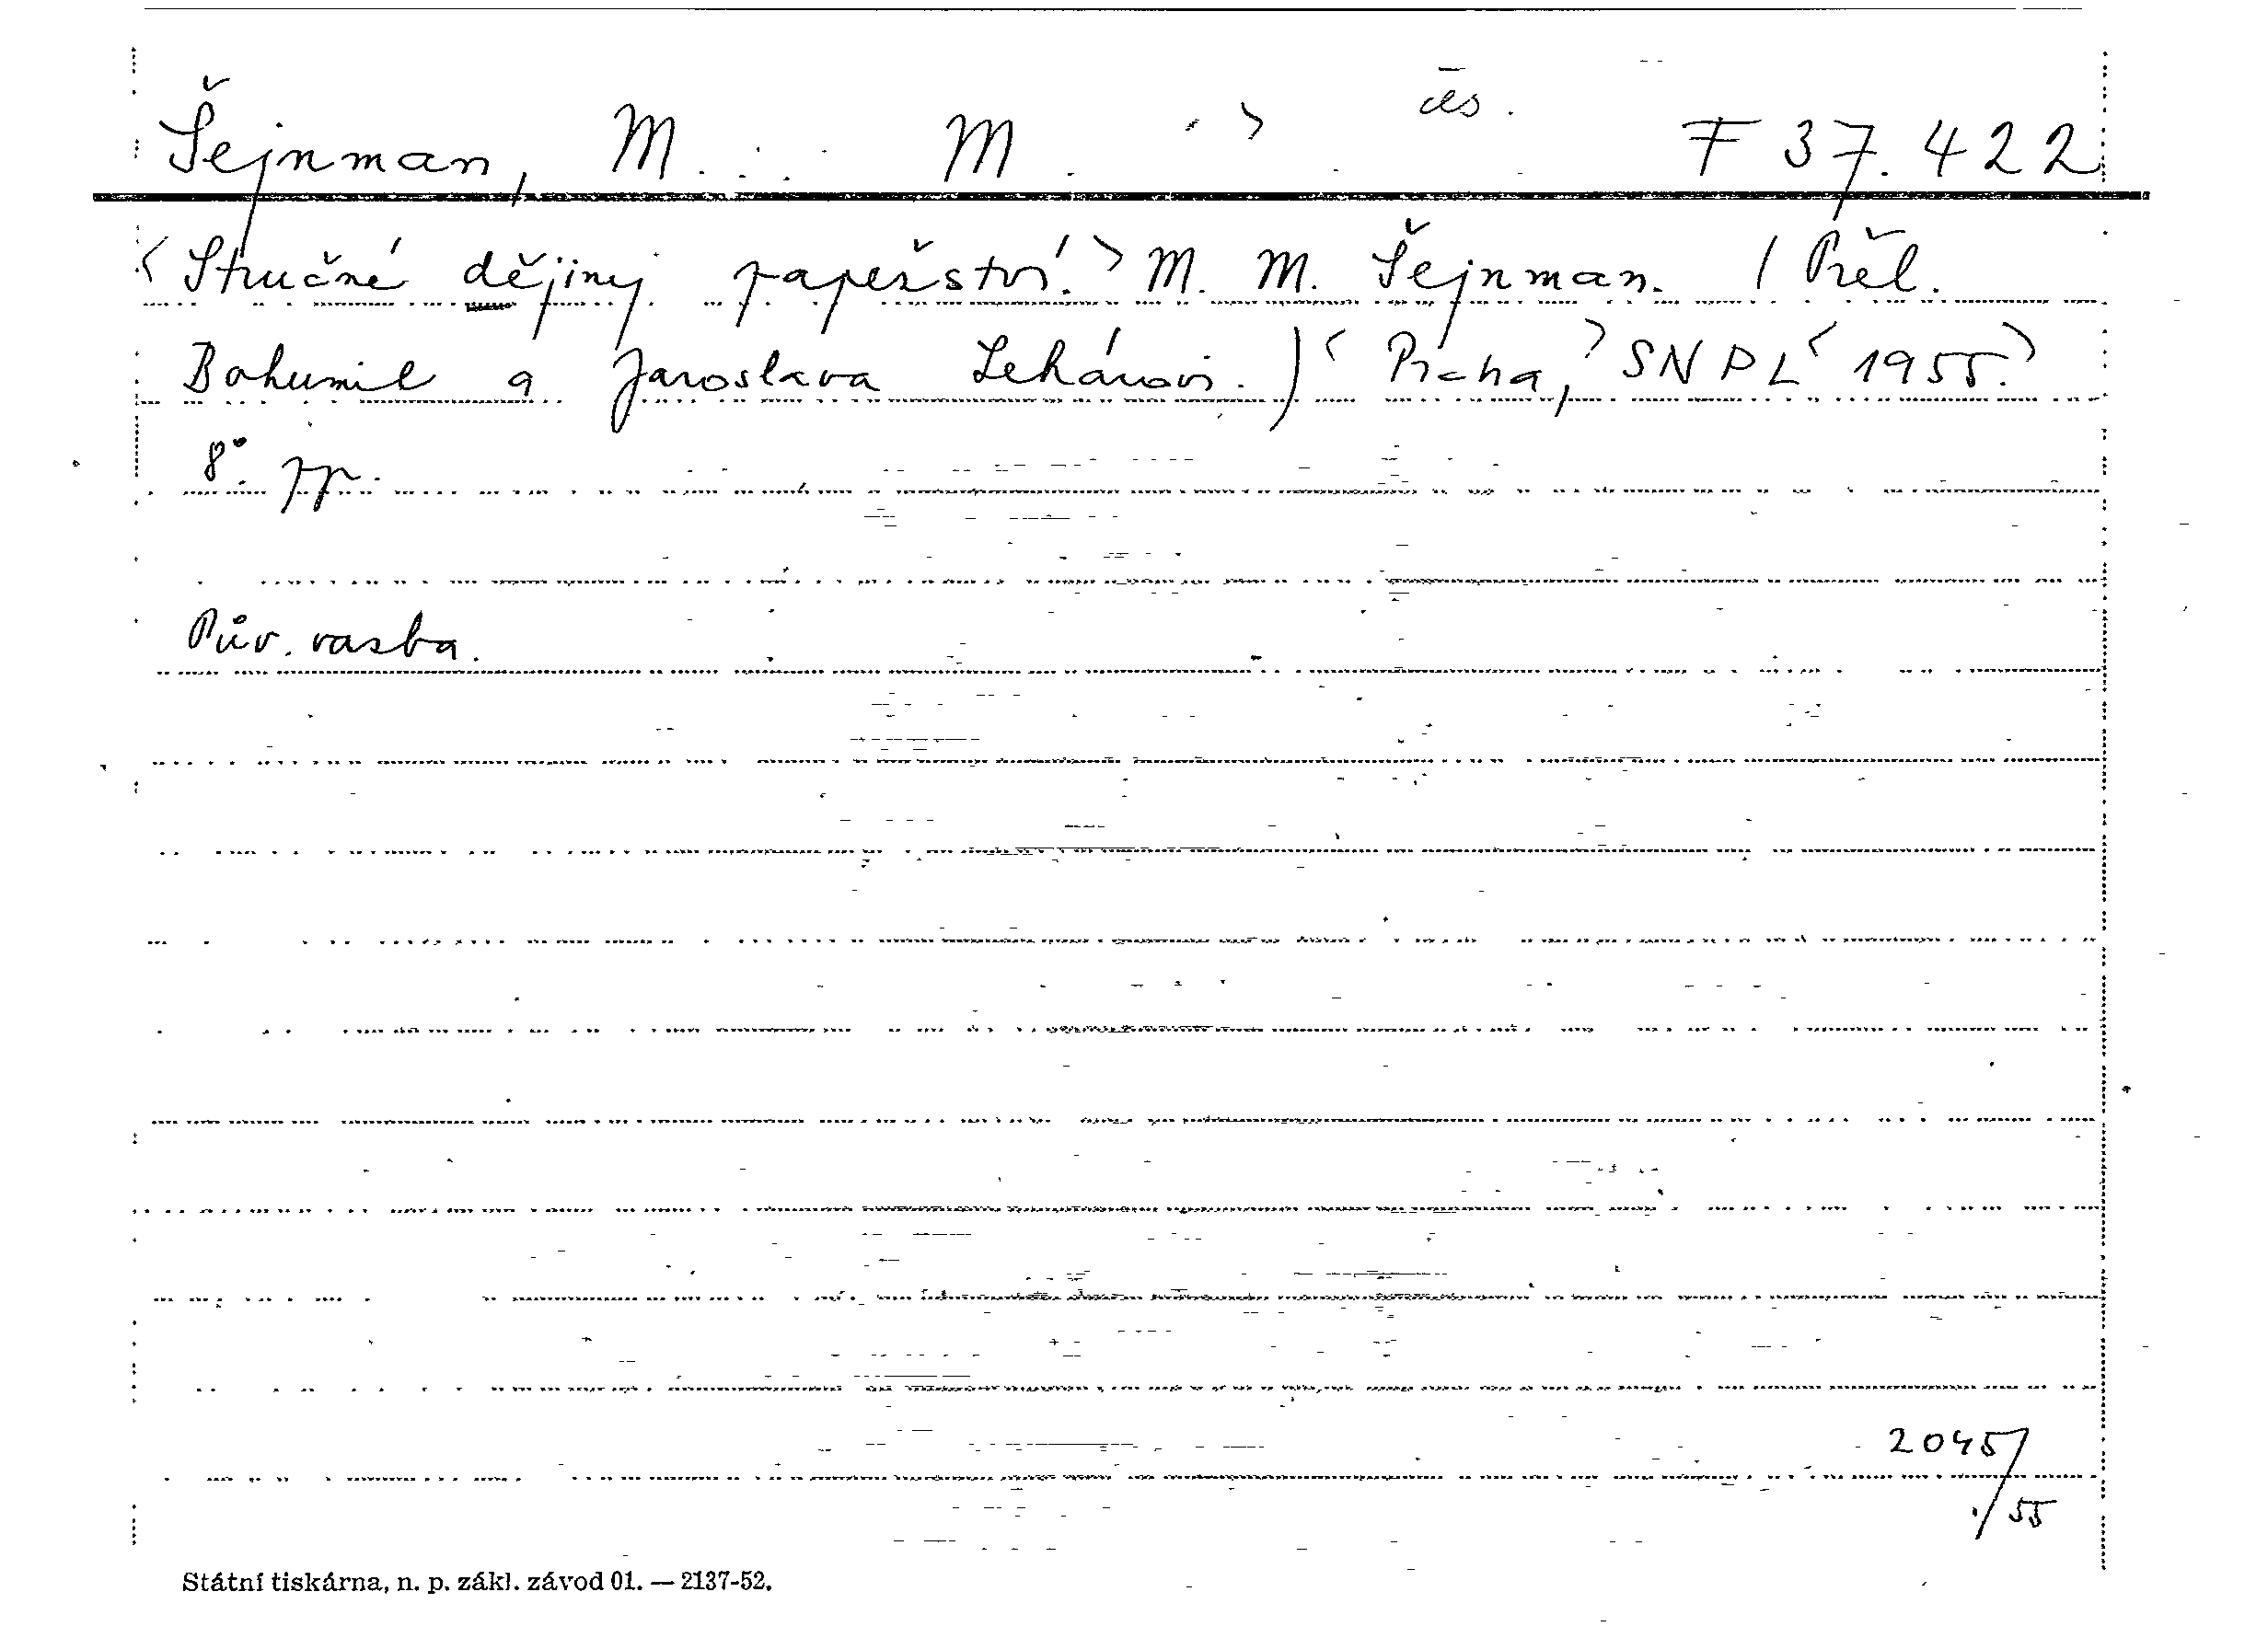 čes.
Šejnman, M. . . M. > F 37.422
<Stručné dějiny papežství.> M. M. Šejnman. (Přel.
Bohumil a Jaroslava Lehárovi.) <Praha,> SNPL <1955.>
8°. pp.
Pův. vazba.
2045/
/55
Státní tiskárna, n. p. zákl. závod 01. — 2137-52.